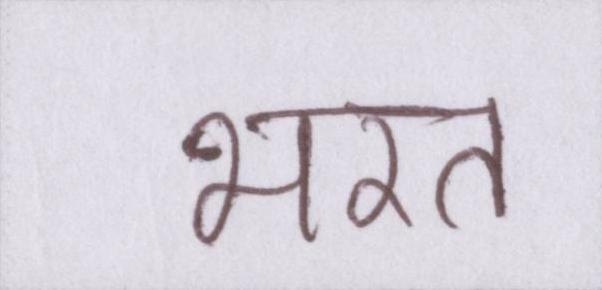 भरत